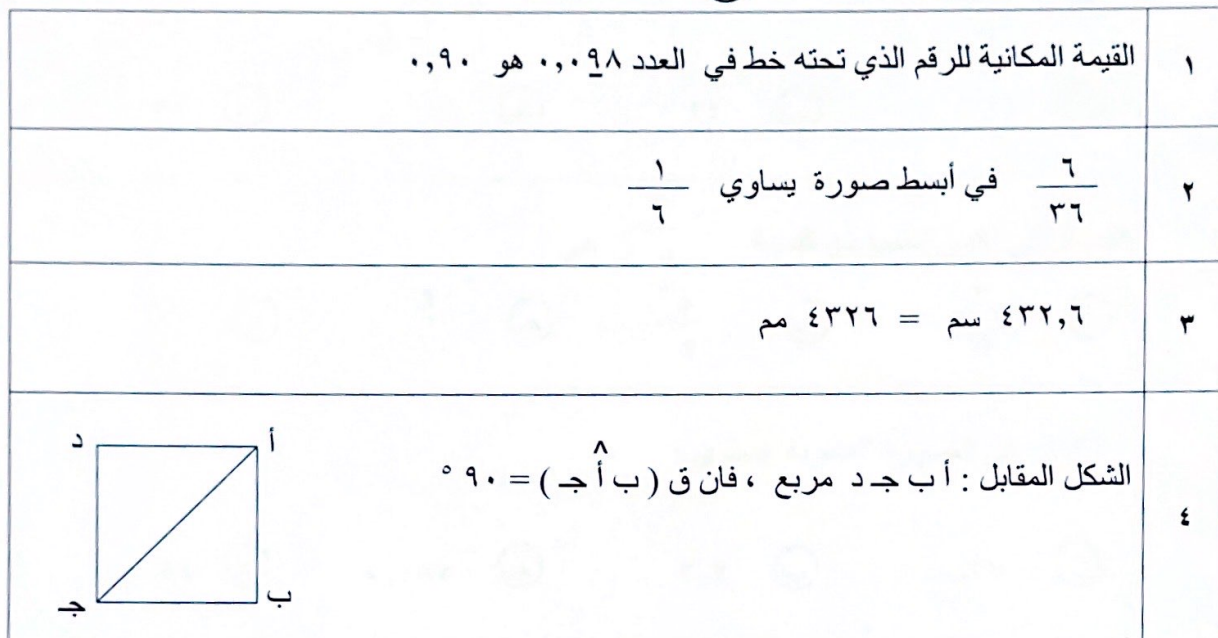 ١ القيمة المكانية للرقم الذي تحته خط في العدد ٠,٠٩٨ هو ٠,٩٠
٢ ٦/٣٦ في أبسط صورة يساوي ١/٦
٣ ٤٣٢,٦ سم = ٤٣٢٦ مم
٤ الشكل المقابل : أ ب جـ د مربع ، فان ق ( ب أ^ جـ ) = ٩٠ °
د أ
جـ ب